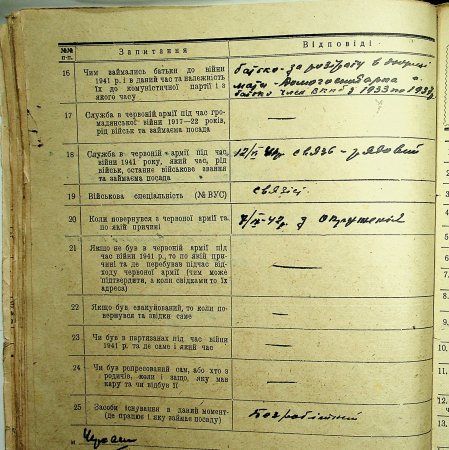 №№ п-п.
Запитання
Відповіді
16
Чим займались батьки до війни
1941 р. і в даний час та належність
їх до комуністичної партії і з
якого часу
батько - за
мати - домогосподарка
батько член ВКПб з 1933 по 1937 р.
17
Служба в червоній армії під час гро-
мадянської війни 1917—22 років,
рід військ та займаєма посада
—
18
Служба в червоній армії під час
війни 1941 року, який час, рід
військ, останнє військове звання
та займаєма посада
связь - рядовий
19
Військова спеціальність (№ ВУС)
связіст
20
Коли повернувся з червоної армії та
по якій причині
з оточення
21
Якщо не був в червоній армії під
час війни 1941 р., то по якій при-
чині та де перебував підчас від-
ходу червоної армії (чим може
підтвердити, а коли свідками то їх
адреса)
—
22
Якщо був евакуйований, то коли по-
вернувся та звідки саме
—
23
Чи був в партизанах під час війни
1941 р. та де саме і який час
—
24
Чи був репресований сам, або хто з
родичів, коли і защо, яку мав
кару та чи відбув її
—
25
Засоби існування в даний момент-
(де працює і яку займає посаду)
Безробітний
8.
9.
10.
11.
12.
13.